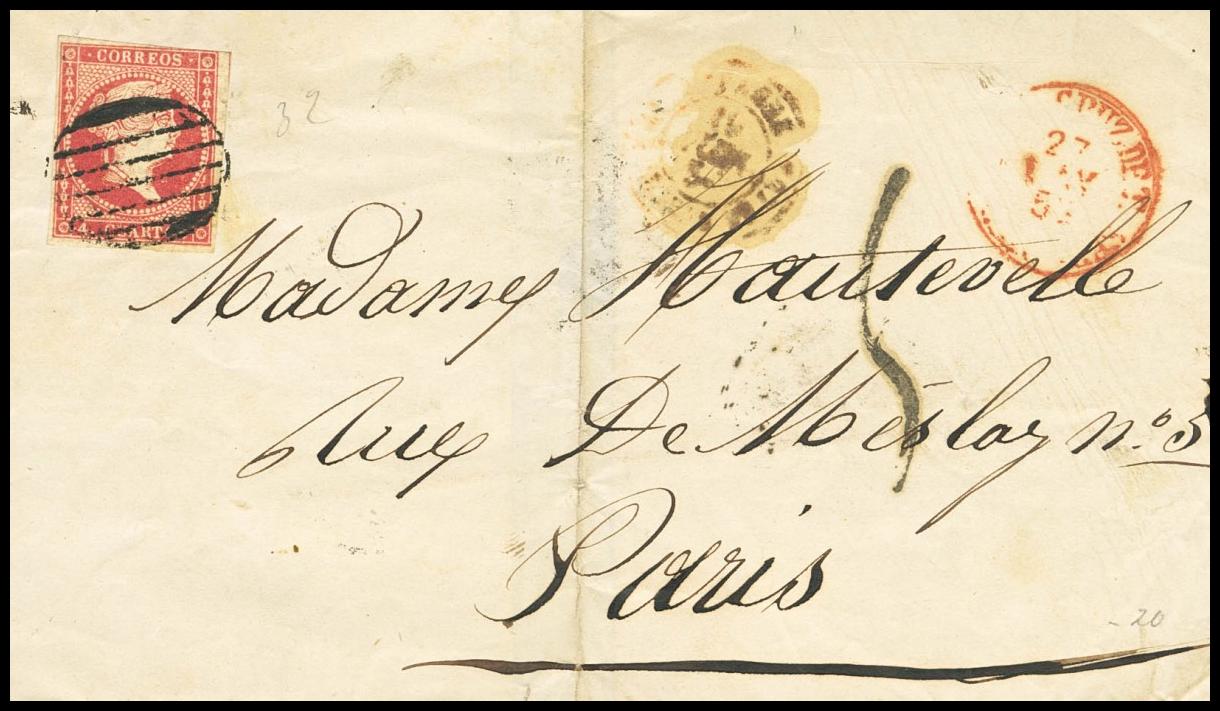 CORREOS
32
27
Madame Hauteville
Rue De Méslay nº 5
Paris
20